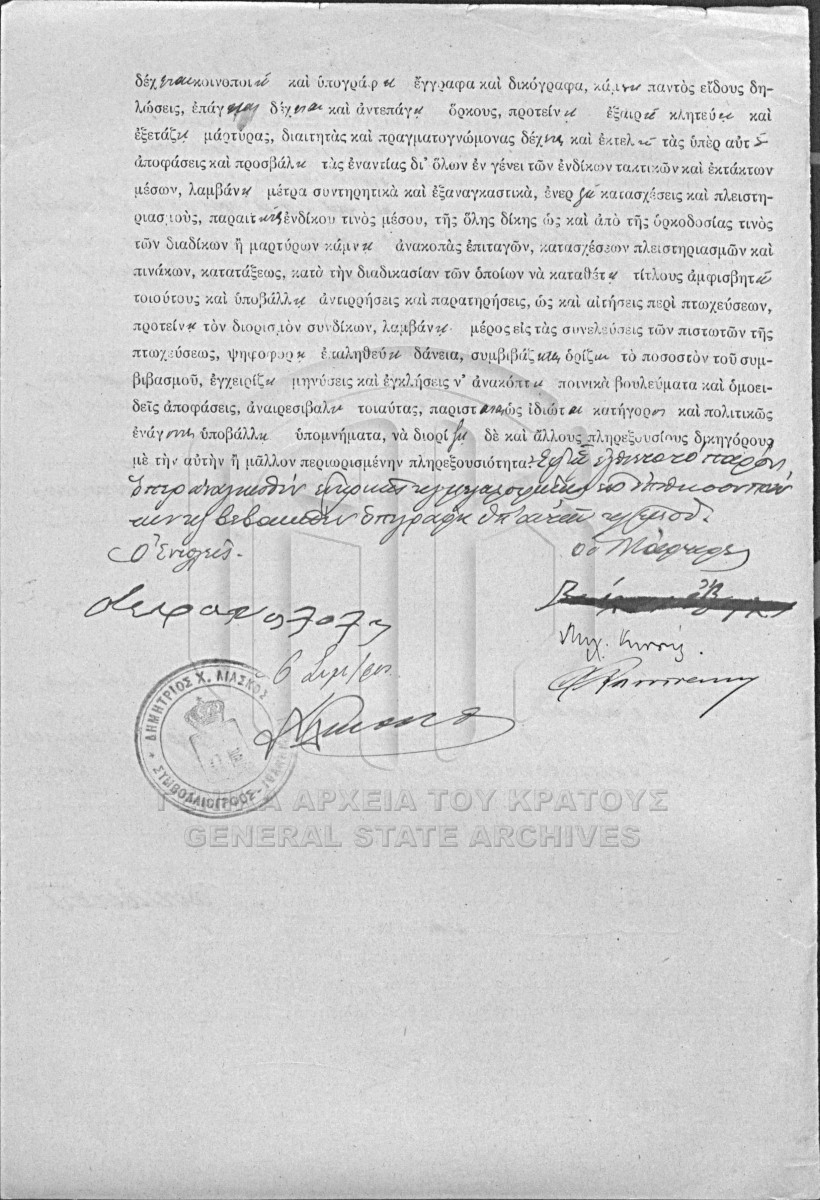 δέχεται κοινοποιεῖ καὶ ὑπογράφει ἔγγραφα καὶ δικόγραφα, κάμνει παντὸς εἴδους δη-
λώσεις, ἐπάγει δέχεται καὶ ἀντεπάγει ὅρκους, προτείνει ἐξαιρεῖ κλητεύει καὶ
ἐξετάζει μάρτυρας, διαιτητὰς καὶ πραγματογνώμονας δέχεται καὶ ἐκτελεῖ τὰς ὑπὲρ αὐτοῦ
ἀποφάσεις καὶ προσβάλει τὰς ἐναντίας δι' ὅλων ἐν γένει τῶν ἐνδίκων τακτικῶν καὶ ἐκτάκτων
μέσων, λαμβάνει μέτρα συντηρητικὰ καὶ ἐξαναγκαστικὰ, ἐνεργεῖ κατασχέσεις καὶ πλειστη-
ριασμοὺς, παραιτεῖται ἐνδίκου τινὸς μέσου, τῆς ὅλης δίκης ὡς καὶ ἀπὸ τῆς ὁρκοδοσίας τινὸς
τῶν διαδίκων ἢ μαρτύρων κάμνει ἀνακοπὰς ἐπιταγῶν, κατασχέσεων πλειστηριασμῶν καὶ
πινάκων, κατατάξεως, κατὰ τὴν διαδικασίαν τῶν ὁποίων νὰ καταθέτει τίτλους ἀμφισβητεῖ
τοιούτους καὶ ὑποβάλλει ἀντιρρήσεις καὶ παρατηρήσεις, ὡς καὶ αἰτήσεις περὶ πτωχεύσεων,
προτείνει τὸν διορισμὸν συνδίκων, λαμβάνει μέρος εἰς τὰς συνελεύσεις τῶν πιστωτῶν τῆς
πτωχεύσεως, ψηφοφορεῖ ἐπαληθεύει δάνεια, συμβιβάζεται ὁρίζει τὸ ποσοστὸν τοῦ συμ-
βιβασμοῦ, ἐγχειρίζει μηνύσεις καὶ ἐγκλήσεις ν' ἀνακόπτει ποινικὰ βουλεύματα καὶ ὁμοει-
δεῖς ἀποφάσεις, ἀναιρεσιβαλει τοιαύτας, παρισταται ὡς ἰδιώτης κατήγορος καὶ πολιτικῶς
ἐνάγων ὑποβάλλει ὑπομνήματα, νὰ διορίζει δὲ καὶ ἄλλους πληρεξουσίους δικηγόρους
μὲ τὴν αὐτὴν ἢ μᾶλλον περιωρισμένην πληρεξουσιότητα. Ἐφ' ᾧ
Οἱ Μάρτυρες
ΔΗΜΗΤΡΙΟΣ Χ. ΛΙΑΣΚΟΣ
ΣΥΜΒΟΛΑΙΟΓΡΑΦΟΣ
ΓΕΝΙΚΑ ΑΡΧΕΙΑ ΤΟΥ ΚΡΑΤΟΥΣ
GENERAL STATE ARCHIVES